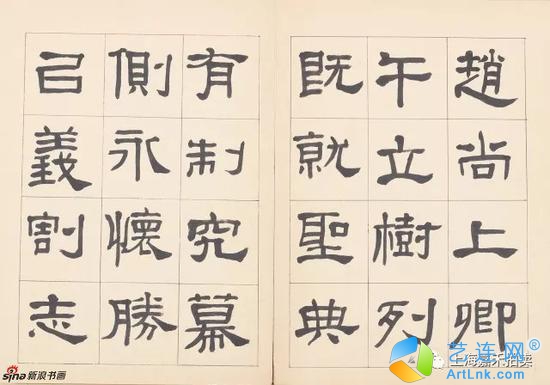 趙尚上卿
午立樹列
既就聖典
有制究幕
側永懷勝
㠯義割志
sina新浪书画
上海嘉禾拍卖
艺连网
ArtLnk.com